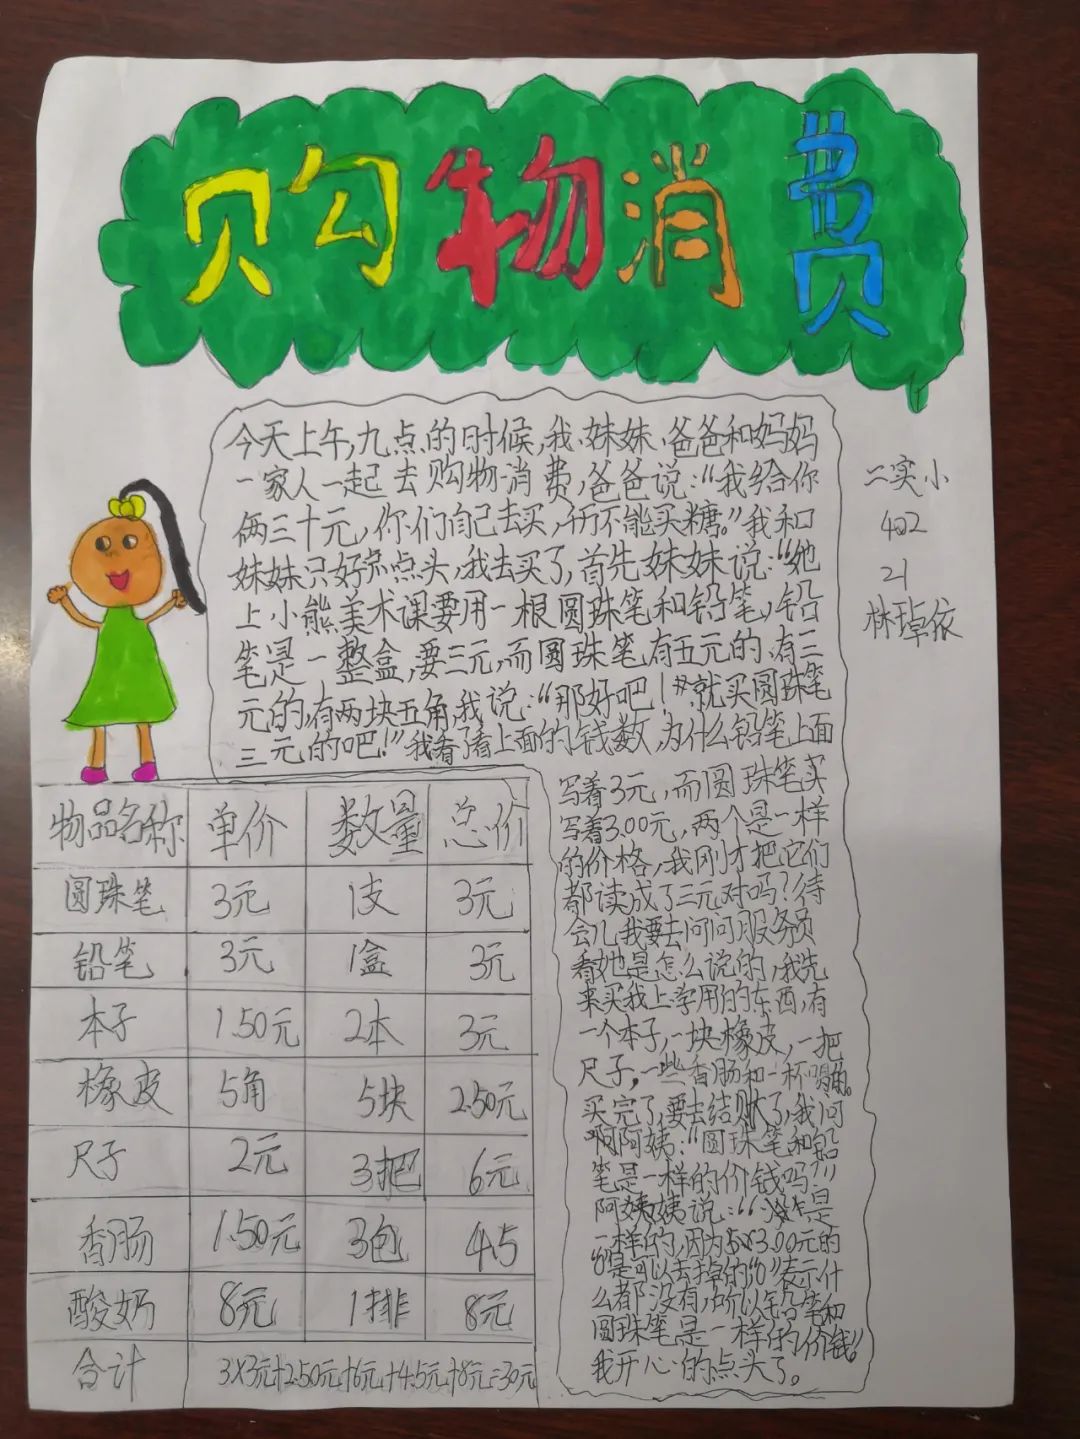 购物消费
今天上午,九点的时候,我、妹妹、爸爸和妈妈
一家人一起去购物消费,爸爸说:“我给你
俩三十元,你们自己去买,仍不能买糖。”我和
妹妹只好点点头,我去买了,首先妹妹说:“她
上小熊美术课要用一根圆珠笔和铅笔,铅
笔是一整盒,要三元,而圆珠笔有五元的,有三
元的,有两块五角,我说:“那好吧!就买圆珠笔
三元的吧!”我看了看上面的钱数,为什么铅笔上面
写着3元,而圆珠笔
写着3.00元,两个是一样
的价格,我刚才把它们
都读成了三元对吗?待
会儿我要去问问服务员
看她是怎么说的,我先
来买我上学用的东西,有
一个本子,一块橡皮,一把
尺子,一些香肠和一杯
买完了,要去结账了,我问
阿姨:“圆珠笔和铅
笔是一样的价钱吗?”
阿姨说:“是
一样的,因为3.00元的
“0”是可以去掉的“0”表示什
么都没有,所以铅笔和
圆珠笔是一样的价钱!”
我开心的点头了。
二实小
402
21
林琸依
物品名称 单价 数量 总价
圆珠笔 3元 1支 3元
铅笔 3元 1盒 3元
本子 1.50元 2本 3元
橡皮 5角 5块 2.50元
尺子 2元 3把 6元
香肠 1.50元 3包 4.5
酸奶 8元 1排 8元
合计 3×3元+2.50元+6元+4.5元+8元=30元